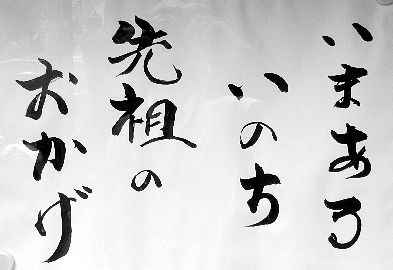 いまある
いのち
先祖の
おかげ